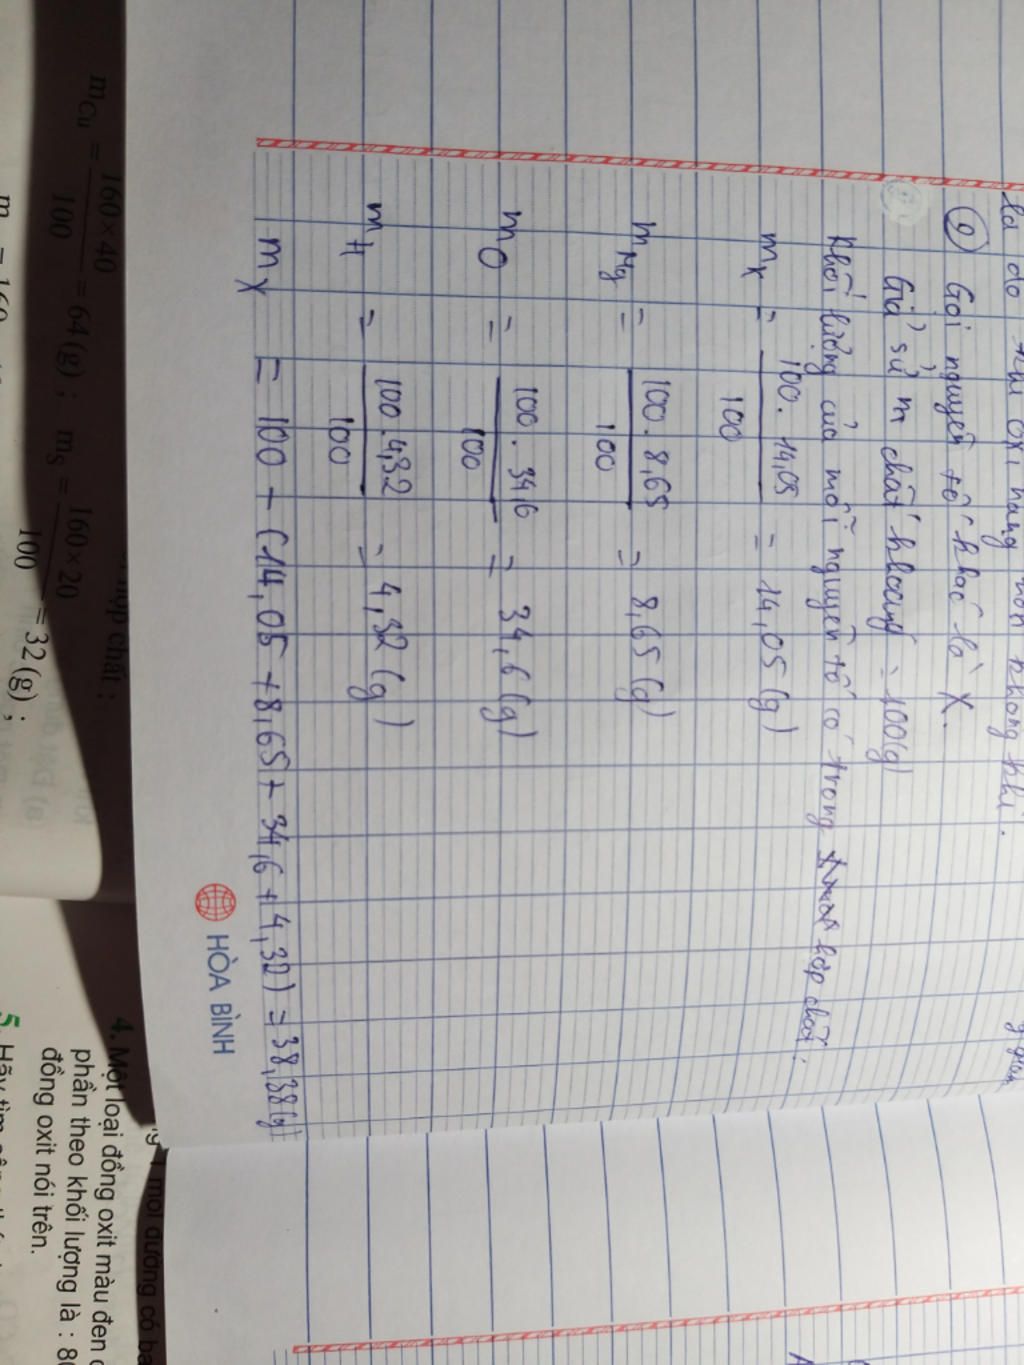 là do khí oxi nặng hơn không khí.
② Gọi nguyên tố khác là X.
Giả sử m chất khoáng = 100(g)
Khối lượng của mỗi nguyên tố có trong hợp chất:
mK = 100.14,05 / 100 = 14,05(g)
mMg = 100.8,65 / 100 = 8,65(g)
mO = 100.34,6 / 100 = 34,6(g)
mH = 100.4,32 / 100 = 4,32(g)
mX = 100 - (14,05 + 8,65 + 34,6 + 4,32) = 38,38(g)
HÒA BÌNH
hợp chất :
mCu = 160×40 / 100 = 64(g) ; mS = 160×20 / 100 = 32(g) ;
1 mol đường có
4. Một loại đồng oxit màu đen
phần theo khối lượng là :
đồng oxit nói trên.
5. Hãy tìm